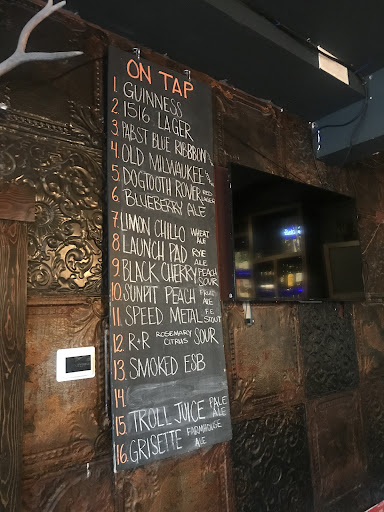 ON TAP
1. GUINNESS
2. 1516 LAGER
3. PABST BLUE RIBBBON
4. OLD MILWAUKEE
5. DOGTOOTH ROVER RED LAGER
6. BLUEBERRY ALE
7. LIMON CHILLO WHEAT ALE
8. LAUNCH PAD RYE ALE
9. BLACK CHERRY PEACH SOUR
10. SUNPIT PEACH FRUIT ALE
11. SPEED METAL F.E. STOUT
12. R+R ROSEMARY CITRUS SOUR
13. SMOKED ESB
14.
15. TROLL JUICE PALE ALE
16. GRISETTE FARMHOUSE ALE